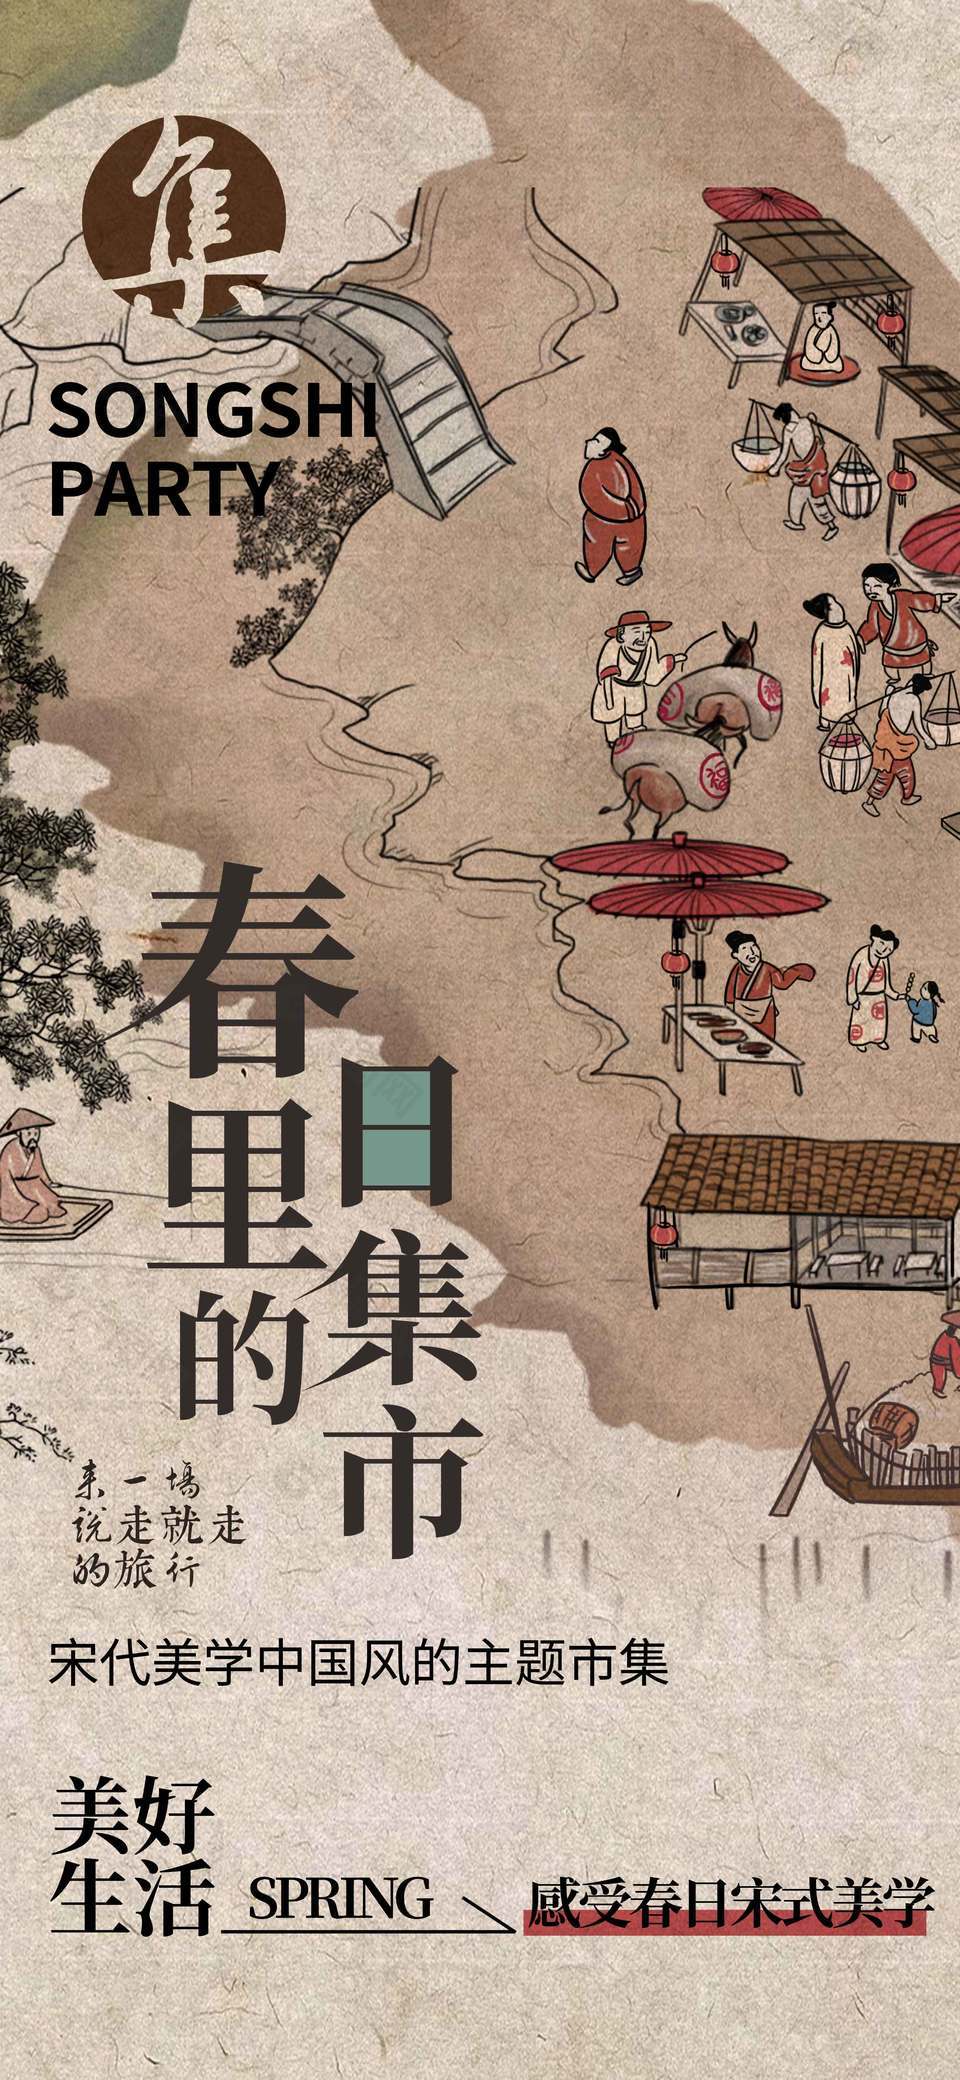 集
SONGSHI
PARTY
福
福
春日
里集
的市
来一場
说走就走
的旅行
宋代美学中国风的主题市集
美好
生活
SPRING
感受春日宋式美学